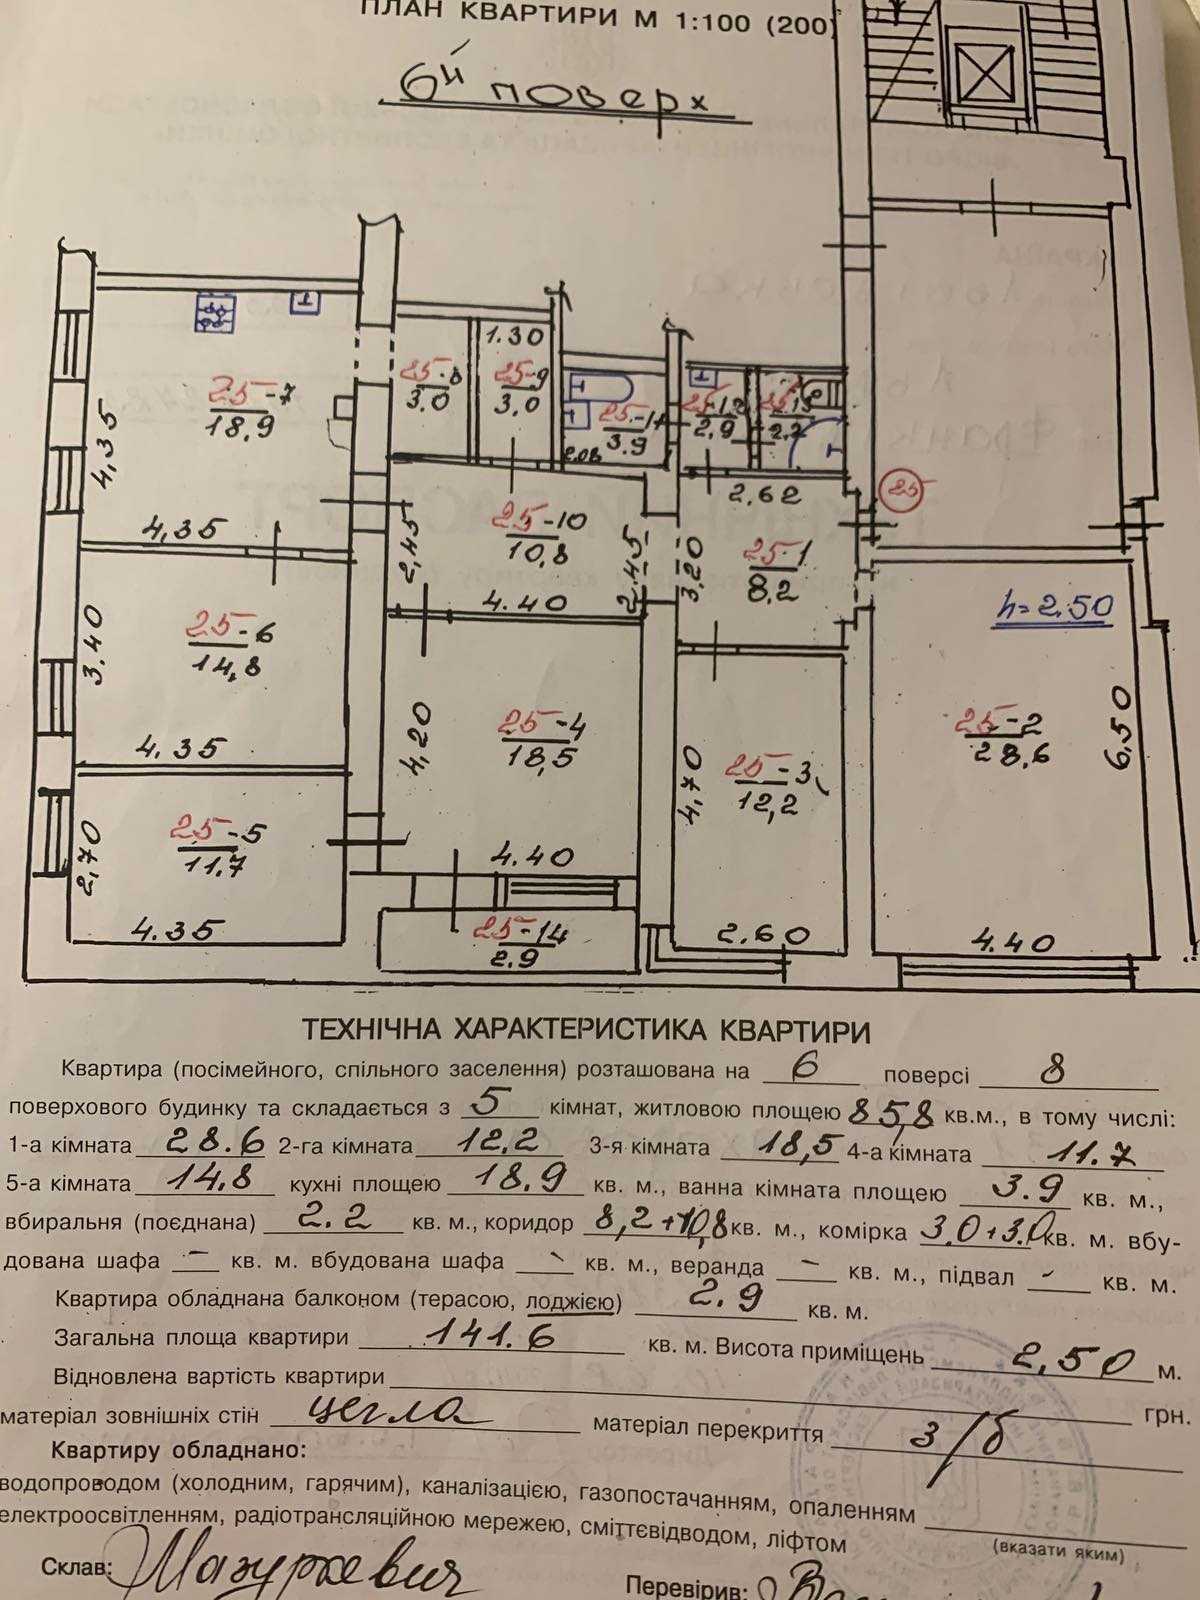 ПЛАН КВАРТИРИ М 1:100 (200)
6й поверх
25-7
18,9
4,35
4,35
25-8
3.0
1.30
25-9
3,0
25-11
3.9
25-12
2,9
25-13
2,2
2,62
25
25-10
10,8
2,45
4.40
2.45
3,20
25-1
8,2
h=2.50
25-6
14,8
3.40
4.35
25-4
18,5
4,20
4.40
25-3
12,2
4,70
2.60
25-2
28,6
6,50
4.40
25-5
11,7
2,70
4.35
25-14
2.9
ТЕХНІЧНА ХАРАКТЕРИСТИКА КВАРТИРИ
Квартира (посімейного, спільного заселення) розташована на 6 поверсі 8
поверхового будинку та складається з 5 кімнат, житловою площею 85,8 кв.м., в тому числі:
1-а кімната 28.6 2-га кімната 12.2 3-я кімната 18,5 4-а кімната 11.7
5-а кімната 14,8 кухні площею 18.9 кв. м., ванна кімната площею 3.9 кв. м.,
вбиральня (поєднана) 2.2 кв. м., коридор 8,2+10,8 кв. м., комірка 3.0+3.0 кв. м. вбу-
дована шафа – кв. м. вбудована шафа - кв. м., веранда – кв. м., підвал - кв. м.
Квартира обладнана балконом (терасою, лоджією) 2.9 кв. м.
Загальна площа квартири 141.6 кв. м. Висота приміщень 2,50 м.
Відновлена вартість квартири грн.
матеріал зовнішніх стін цегла матеріал перекриття з/б
Квартиру обладнано:
водопроводом (холодним, гарячим), каналізацією, газопостачанням, опаленням
електроосвітленням, радіотрансляційною мережею, сміттєвідводом, ліфтом
(вказати яким)
Склав: Мазуркевич Перевірив: